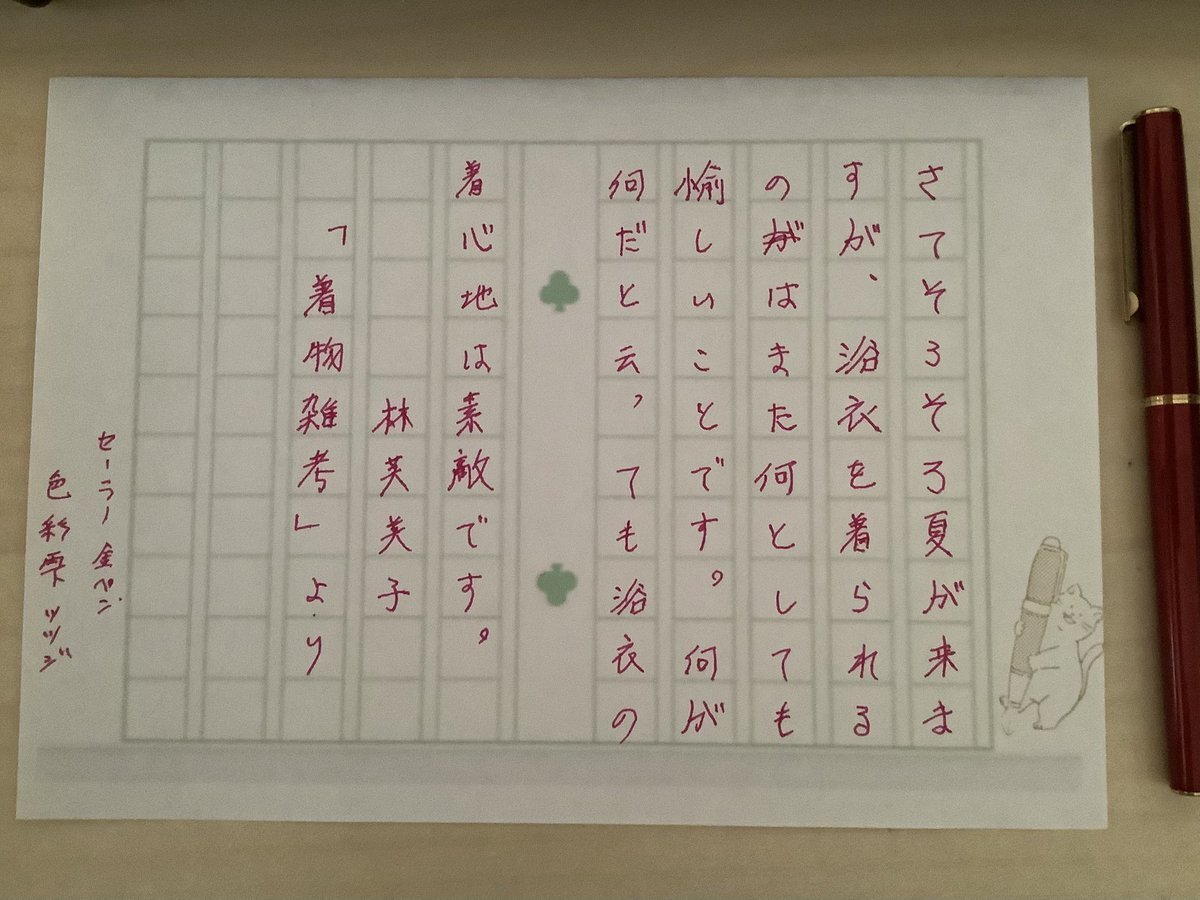 さてそろそろ夏が来ま
すが、浴衣を着られる
のがはまた何としても
愉しいことです。何が
何だと云つても浴衣の
着心地は素敵です。
林芙美子
「着物雑考」より
セーラー金ペン
色彩雫ツツジ